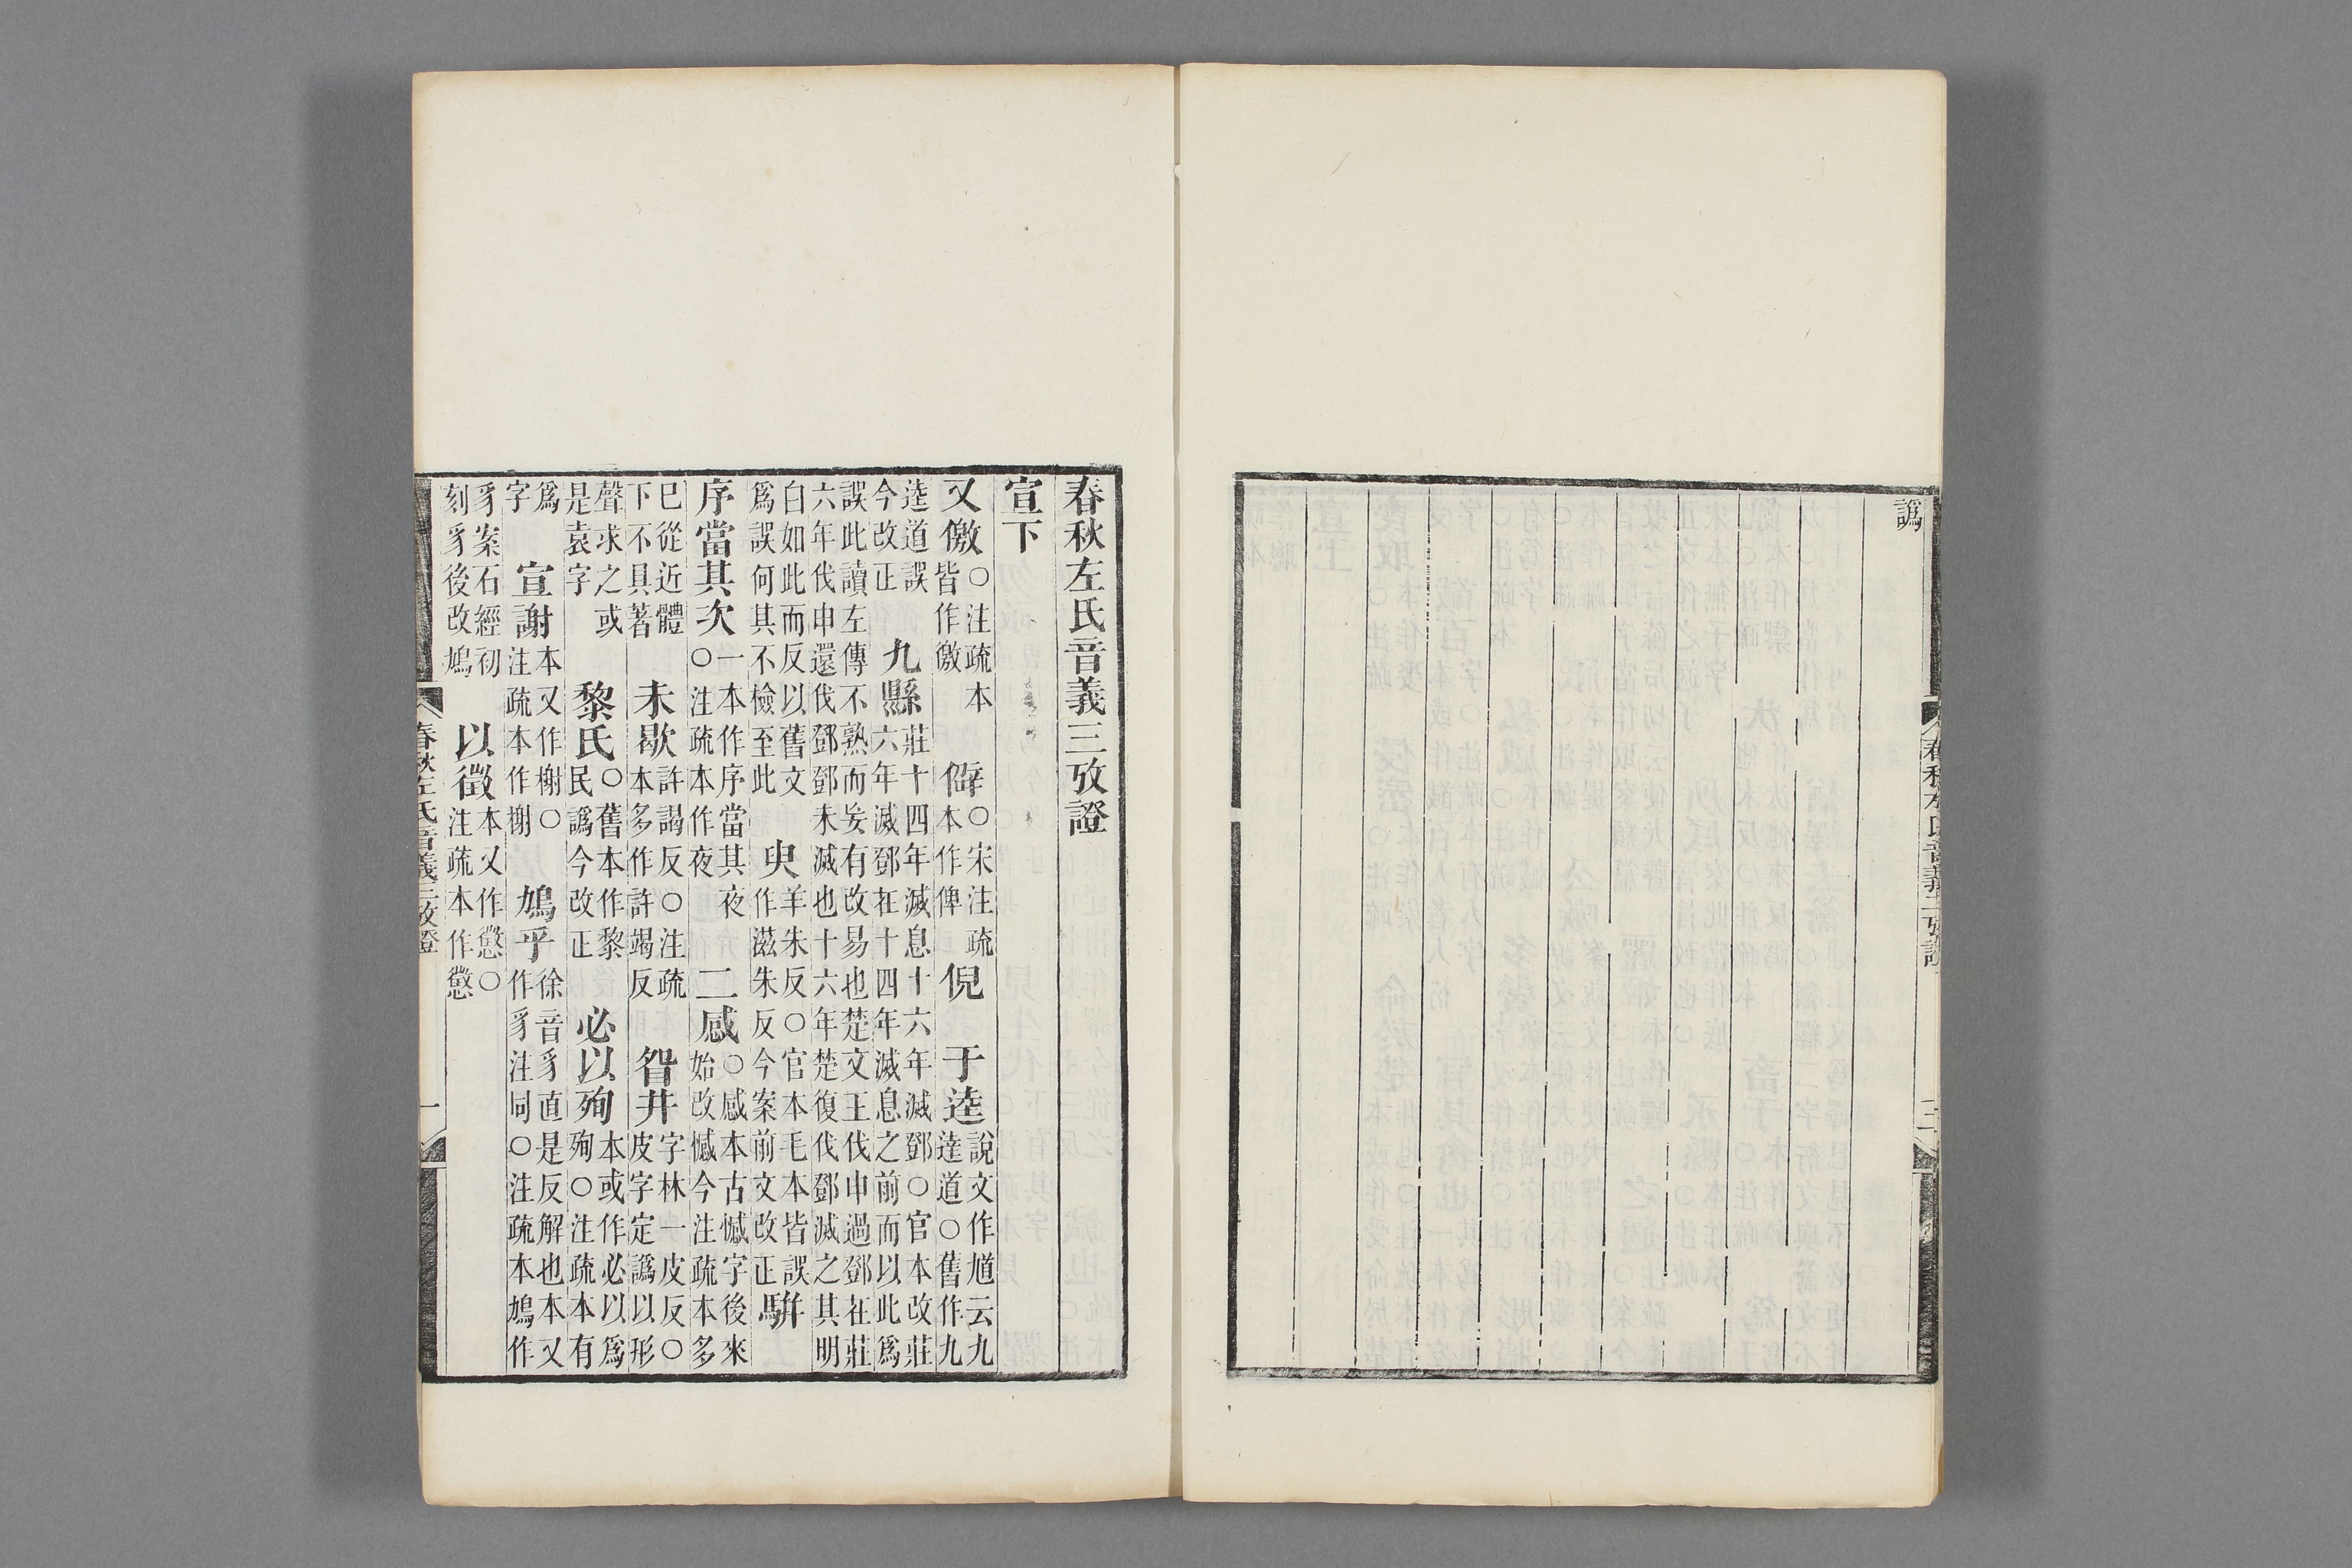 譌
春秋左氏音義三攷證
宣下
又儌○注疏本皆作徼 僻○宋注疏本作俾 倪 于逵說文作馗云九達道○舊作九
逵道誤今改正 九縣莊十四年滅息十六年滅鄧○官本改莊六年滅鄧在十四年滅息之前而以此爲
誤此讀左傳不熟而妄有改易也楚文王伐申過鄧在莊六年伐申還伐鄧鄧未滅也十六年楚復伐鄧滅之其明
白如此而反以舊文爲誤何其不檢至此 臾羊朱反○官本毛本皆誤作滋朱反今案前文改正 駢
序當其次一本作序當其夜○注疏本作夜 二感○感本古憾字後來始改憾今注疏本多
已從近體下不具著 未歇許謁反○注疏本多作許竭反 眢井字林一皮反○皮字定譌以形
聲求之或是袁字 黎氏○舊本作黎民譌今改正 必以殉本或作必以爲殉○注疏本有
爲字 宣謝本又作榭○注疏本作榭 鳩乎徐音豸直是反解也本又作豸注同○注疏本鳩作
豸案石經初刻豸後改鳩 以徵本又作懲○注疏本作懲
春秋左氏音義三攷證 一